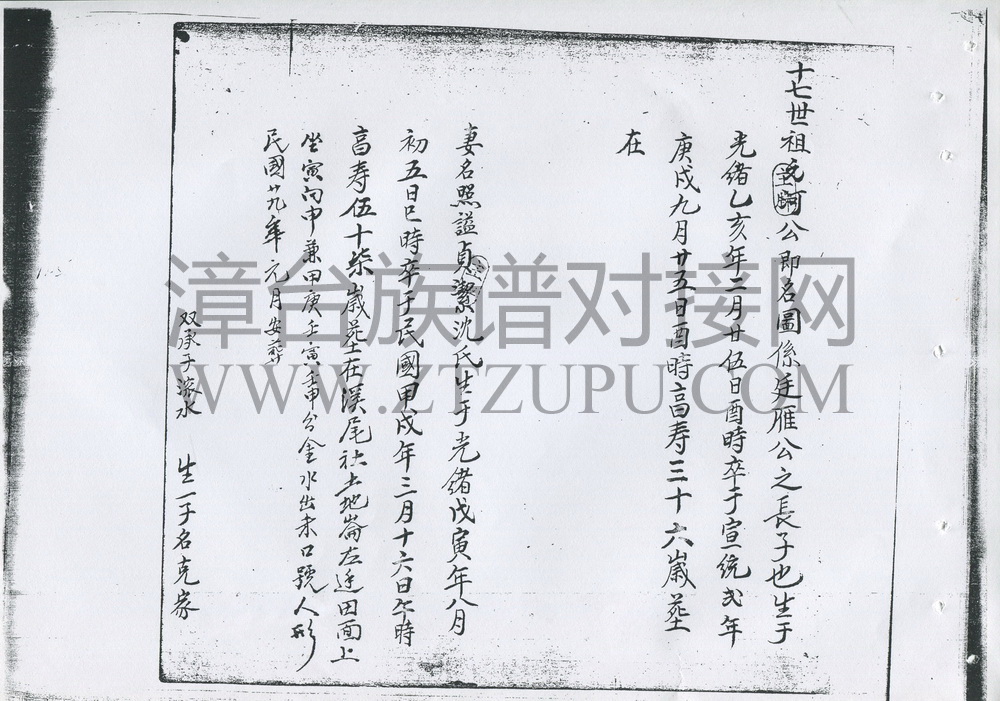 十七世祖 公即名圖係廷雁公之長子也生于
光緒乙亥年二月廿伍日酉時卒于宣統弍年
庚戌九月廿五日酉時高寿三十六歲葬
在
妻名照謚貞潔沈氏生于光緒戊寅年八月
初五日巳時卒于民國甲戌年三月十六日午時
高寿伍十柒歲葬在溪尾社土地崙左边田面上
坐寅向申兼甲庚 寅 申分金水出未口號人形
民國廿九年元月安葬
双承子 水 生一子名克家
漳台族谱对接网
WWW.ZTZUPU.COM